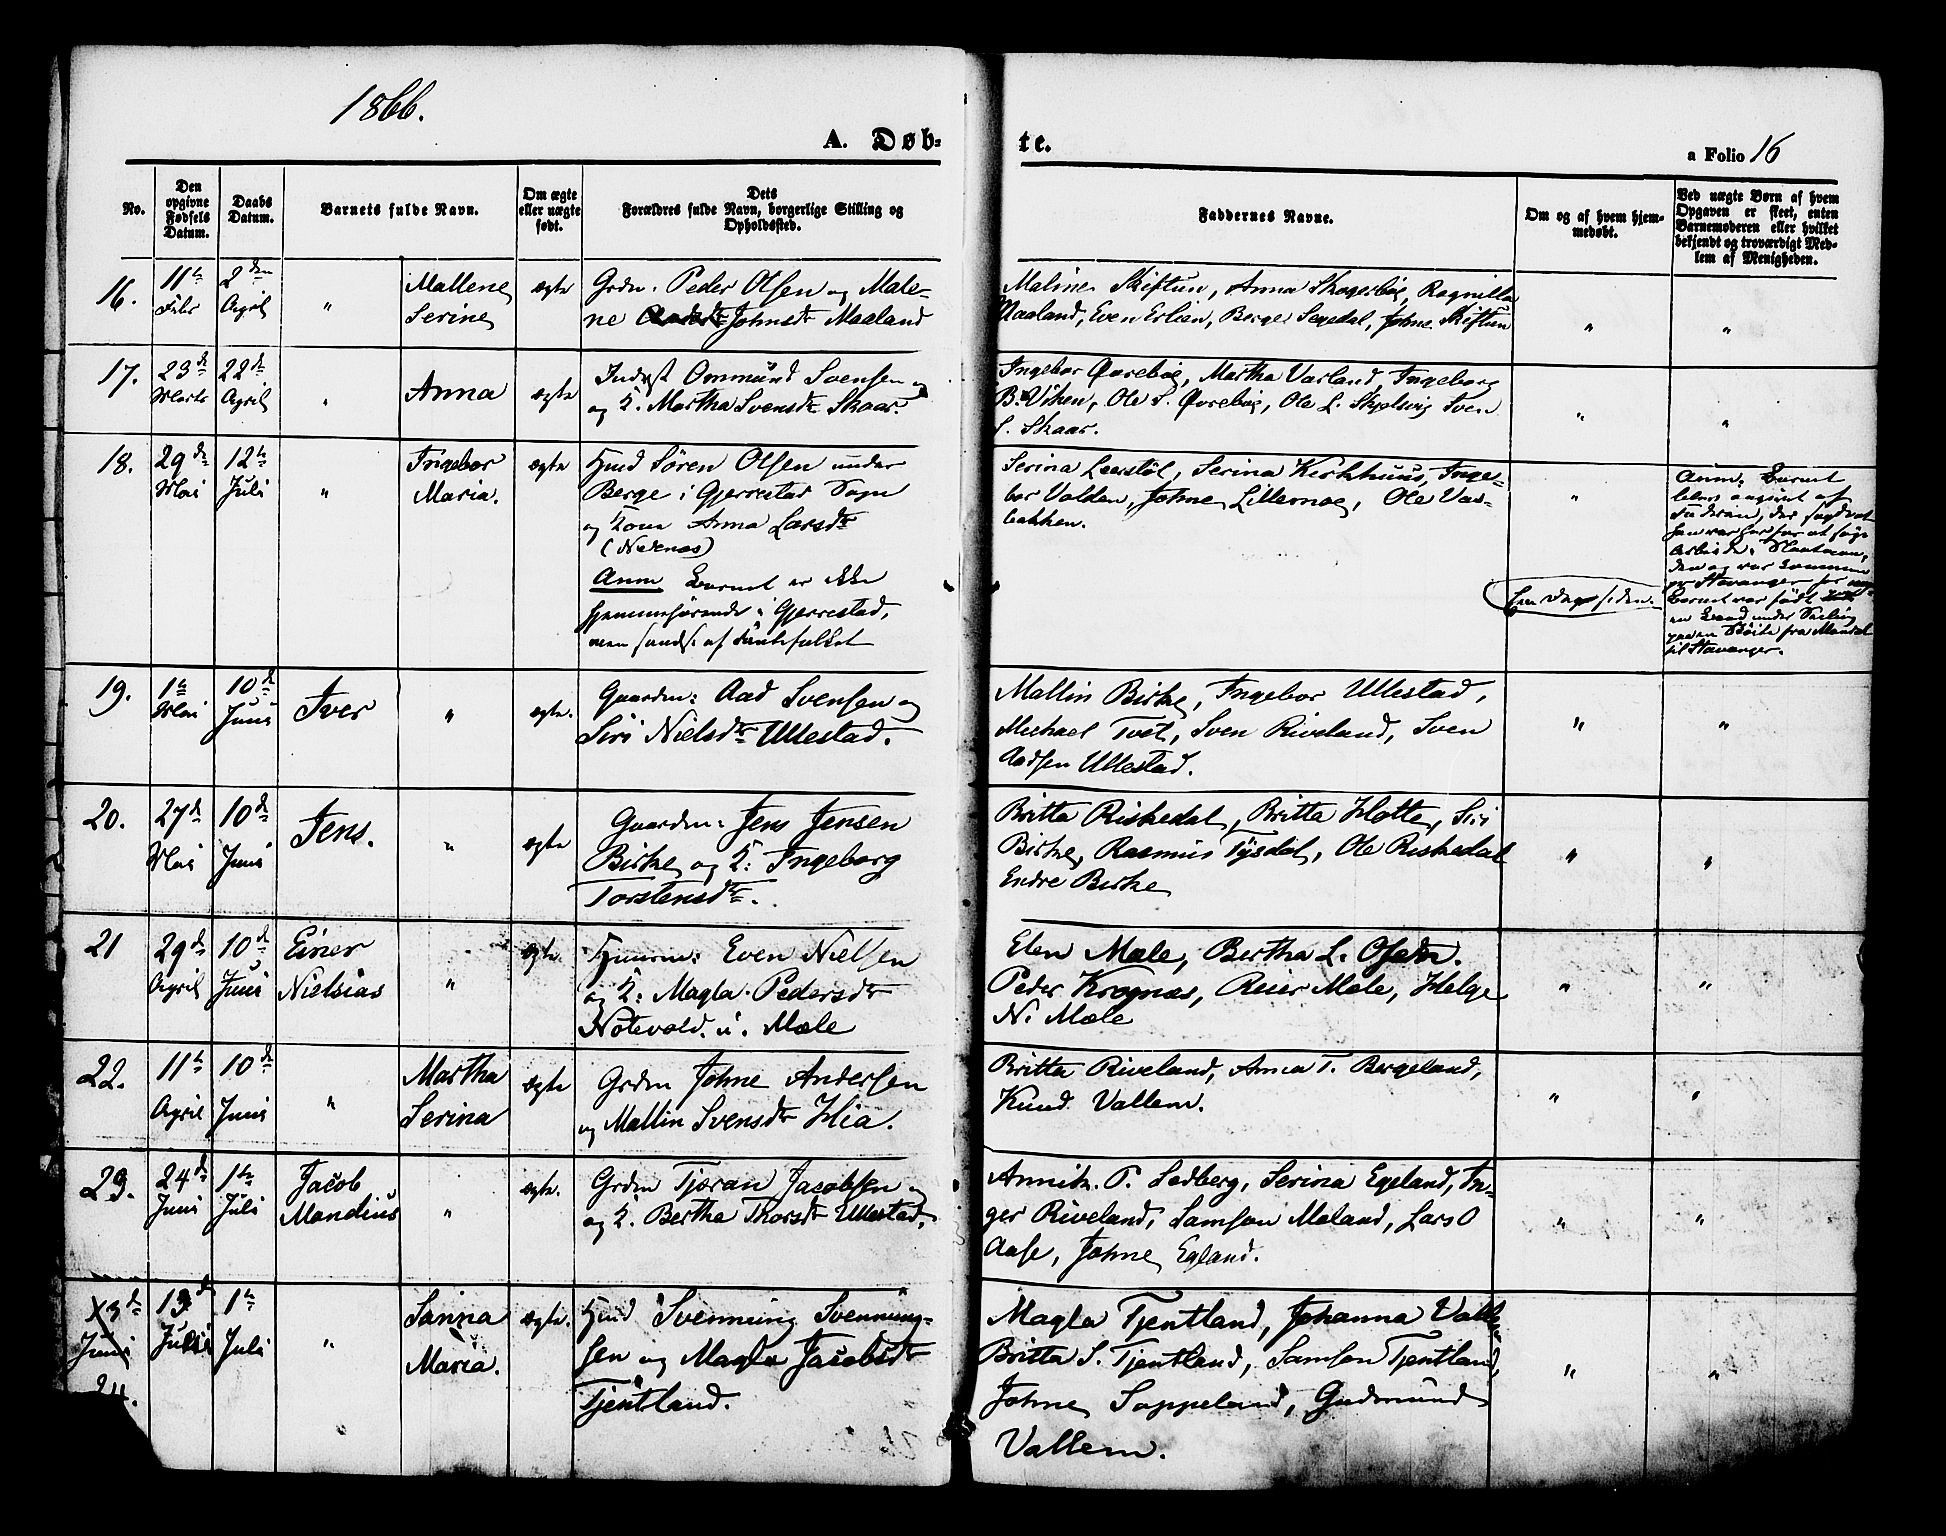 1866.
A. Døb-
te.
a Folio 16
No.
Den
opgivne
Fødsels
Datum.
Daabs
Datum.
Barnets fulde Navn.
Om ægte
eller uægte
født.
Dets
Forældres fulde Navn, borgerlige Stilling og
Opholdssted.
Faddernes Navne.
Om og af hvem hjem-
medøbt.
Ved uægte Børn af hvem
Opgaven er skeet, enten
Barnemoderen eller hvilket
bekjendt og troværdigt Med-
lem af Menigheden.
16.
11te
Febr
2den
April
"
Mallene
Serine
ægte
Grdm. Peder Olsen og Male-
ne Johnsdtr Maaland
Maline Skiftun, Anna Skogerbøe, Ragnilla
Maaland, Even Erlien, Berge Segedal, Johne Skiftun
"
"
17.
23de
Marts
22de
April
"
Anna
ægte
Inderst Ommund Svensen og
og K. Martha Svensdtr Skaar.
Ingebor Qvrebøe, Martha Varland, Ingeborg
B. Viken, Ole S. Qvrebøe, Ole L. Skjelsvig Sven
S. Skaar.
"
"
18.
29de
Mai
12te
Juli
"
Ingebor
Maria.
ægte
Hmd Søren Olsen under
Berge i Gjerrestad Sogn
og Kone Anna Larsdtr
(Nedenæs)
Anm Barnet er ikke
hjemmehørende i Gjerrestad,
men sands. af Fantefolket
Serina Leerstøl, Serina Kirkhuus, Inge-
bor Valden, Johne Lillemoe, Ole Vas-
bakken.
"
Anm. Barnet
blev angivet af
Faderen, der sagde at
han var her for at søge
Arbeide.
den og var kommen
Barnet var født
en Baad under Seiling
fra Mandal
til Stavanger.
19.
1te
Mai
10de
Juni
Iver
"
ægte.
Gaardm: Aad Svensen og
Siri Nielsdtr Ullestad.
Mallin Birke, Ingebor Ullestad,
Michael Tvet, Sven Riveland, Sven
Aadsen Ullestad.
"
"
20.
27de
Mai
10de
Juni
Jens.
"
ægte
Gaardm: Jens Jensen
Birke og K: Ingeborg
Torstensdtr.
Britta Riskedal, Britta Hotte, Siri
Birke, Rasmus Tysdal, Ole Riskedal
Endre Birke
"
"
21
29de
April
10de
Juni
Einer
Nielsias
"
ægte.
Huusm: Even Nielsen
og K: Magla Pedersdtr
Notevold. u. Mæle
Elen Mæle, Bertha L.
Peder Krognæs, Reier Mæle, Helge
N. Mæle
"
"
22.
11te
April
10de
Juni
"
Martha
Serina
ægte
Grdm Johne Andersen
og Mallin Svensdtr Hia.
Britta Riveland, Anna T. Bergeland,
Knud Vallem.
"
"
23.
24de
Juni
1te
Juli
Jacob
Mandius
"
ægte.
Grdm Tjøran Jacobsen og
og K. Bertha Thorsdtr Ullestad,
P. Sedberg, Serina Egeland, In-
ger Riveland, Samson Meland, Lars O
Aase, Johne Egland.
"
"
24.
13de
1te
Juli
"
Sanna
Maria.
ægte.
Hmd Svenning Svenning-
sen og Magla Jacobsdtr
Tjentland.
Magla Tjentland, Johanna Valle
Britta S. Tjentland, Samson Tjentland,
Johne Soppeland, Gudmund
Vallem.
"
"